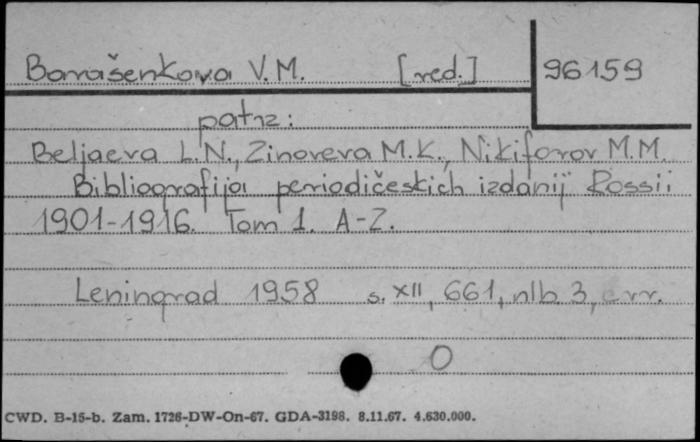 Barrašenkova V.M. [red.] 96159
patrz:
Beljaeva L.N., Zinoveva M.K., Nikiforov M.M.
Bibliografija periodičeskich izdanij Rossii
1901-1916. Tom 1. A-Z.
Leningrad 1958 s. XII, 661, nlb. 3, err.
0
CWD. B-15-b. Zam. 1726-DW-On-67. GDA-3198. 8.11.67. 4.630.000.